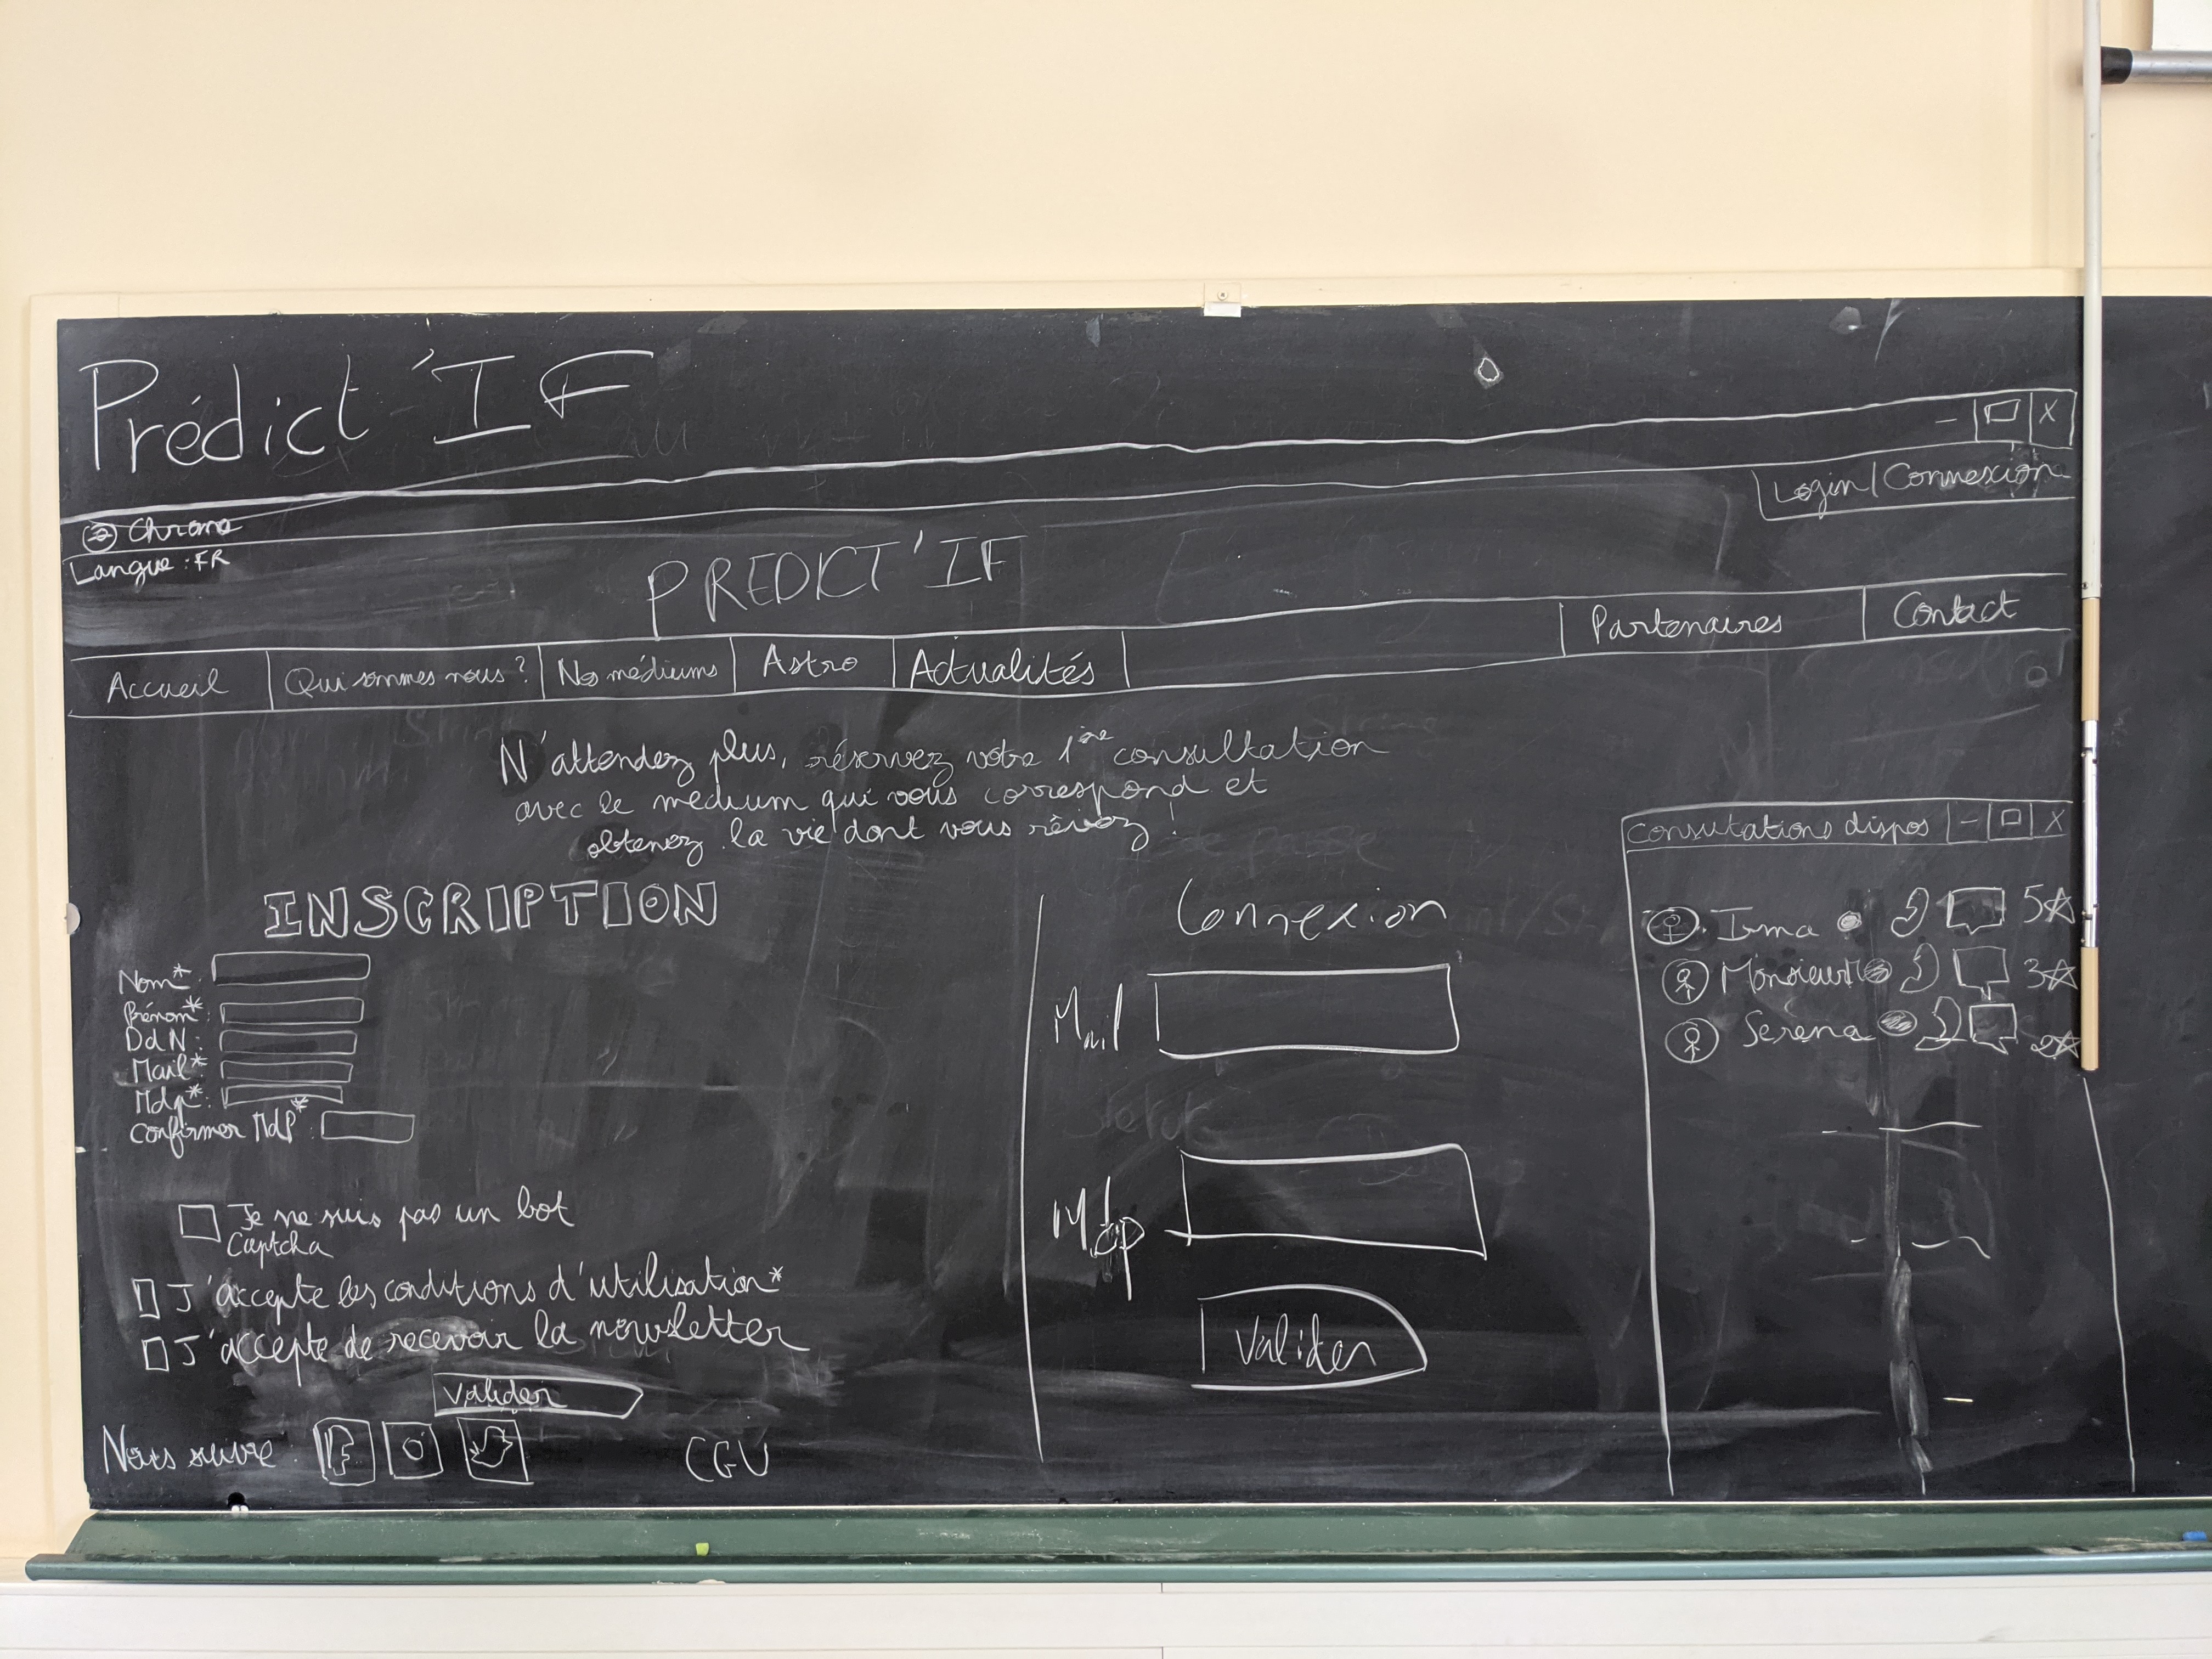 Prédict'IF
- X
Chrome
Login/Connexion
Langue : FR
PREDICT'IF
Accueil
Qui sommes nous ?
Nos médiums
Astro
Actualités
Partenaires
Contact
N'attendez plus, réservez votre 1ère consultation
avec le médium qui vous correspond et
obtenez la vie dont vous rêvez !
INSCRIPTION
Nom* :
Prénom* :
DdN :
Mail* :
Mdp* :
Confirmer MdP* :
Je ne suis pas un bot
Captcha
J'accepte les conditions d'utilisation*
J'accepte de recevoir la newsletter
Valider
Nous suivre :
CGU
Connexion
Mail
Mdp
Valider
consutations dispos - X
Irma 5
Monsieur 3
Serena 2